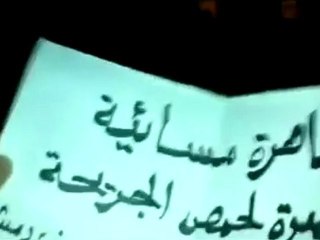 ـاهرة مسائية
ـرة لحمص الجريحة